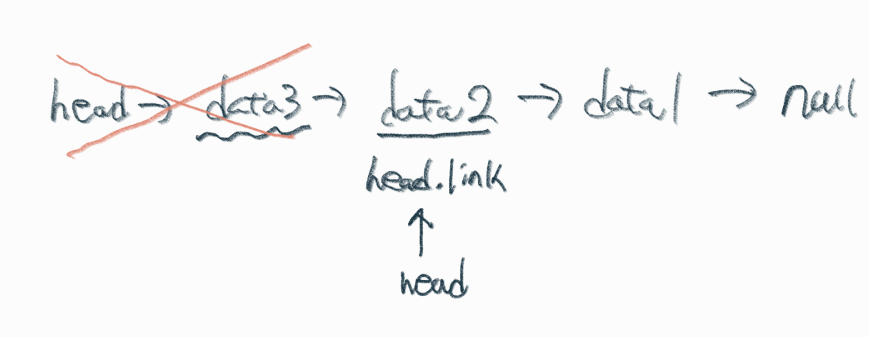 head → data3 → data2 → data1 → null
head.link
↑
head